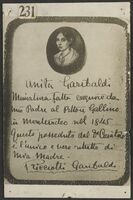 231
Anita Garibaldi
Miniatura fatta eseguire da
mio Padre al Pittore Gallino
in Montevideo nel 1845
Questo posseduto dal
è l'unico e vero ritratto di
mia Madre.
Ricciotti Garibaldi